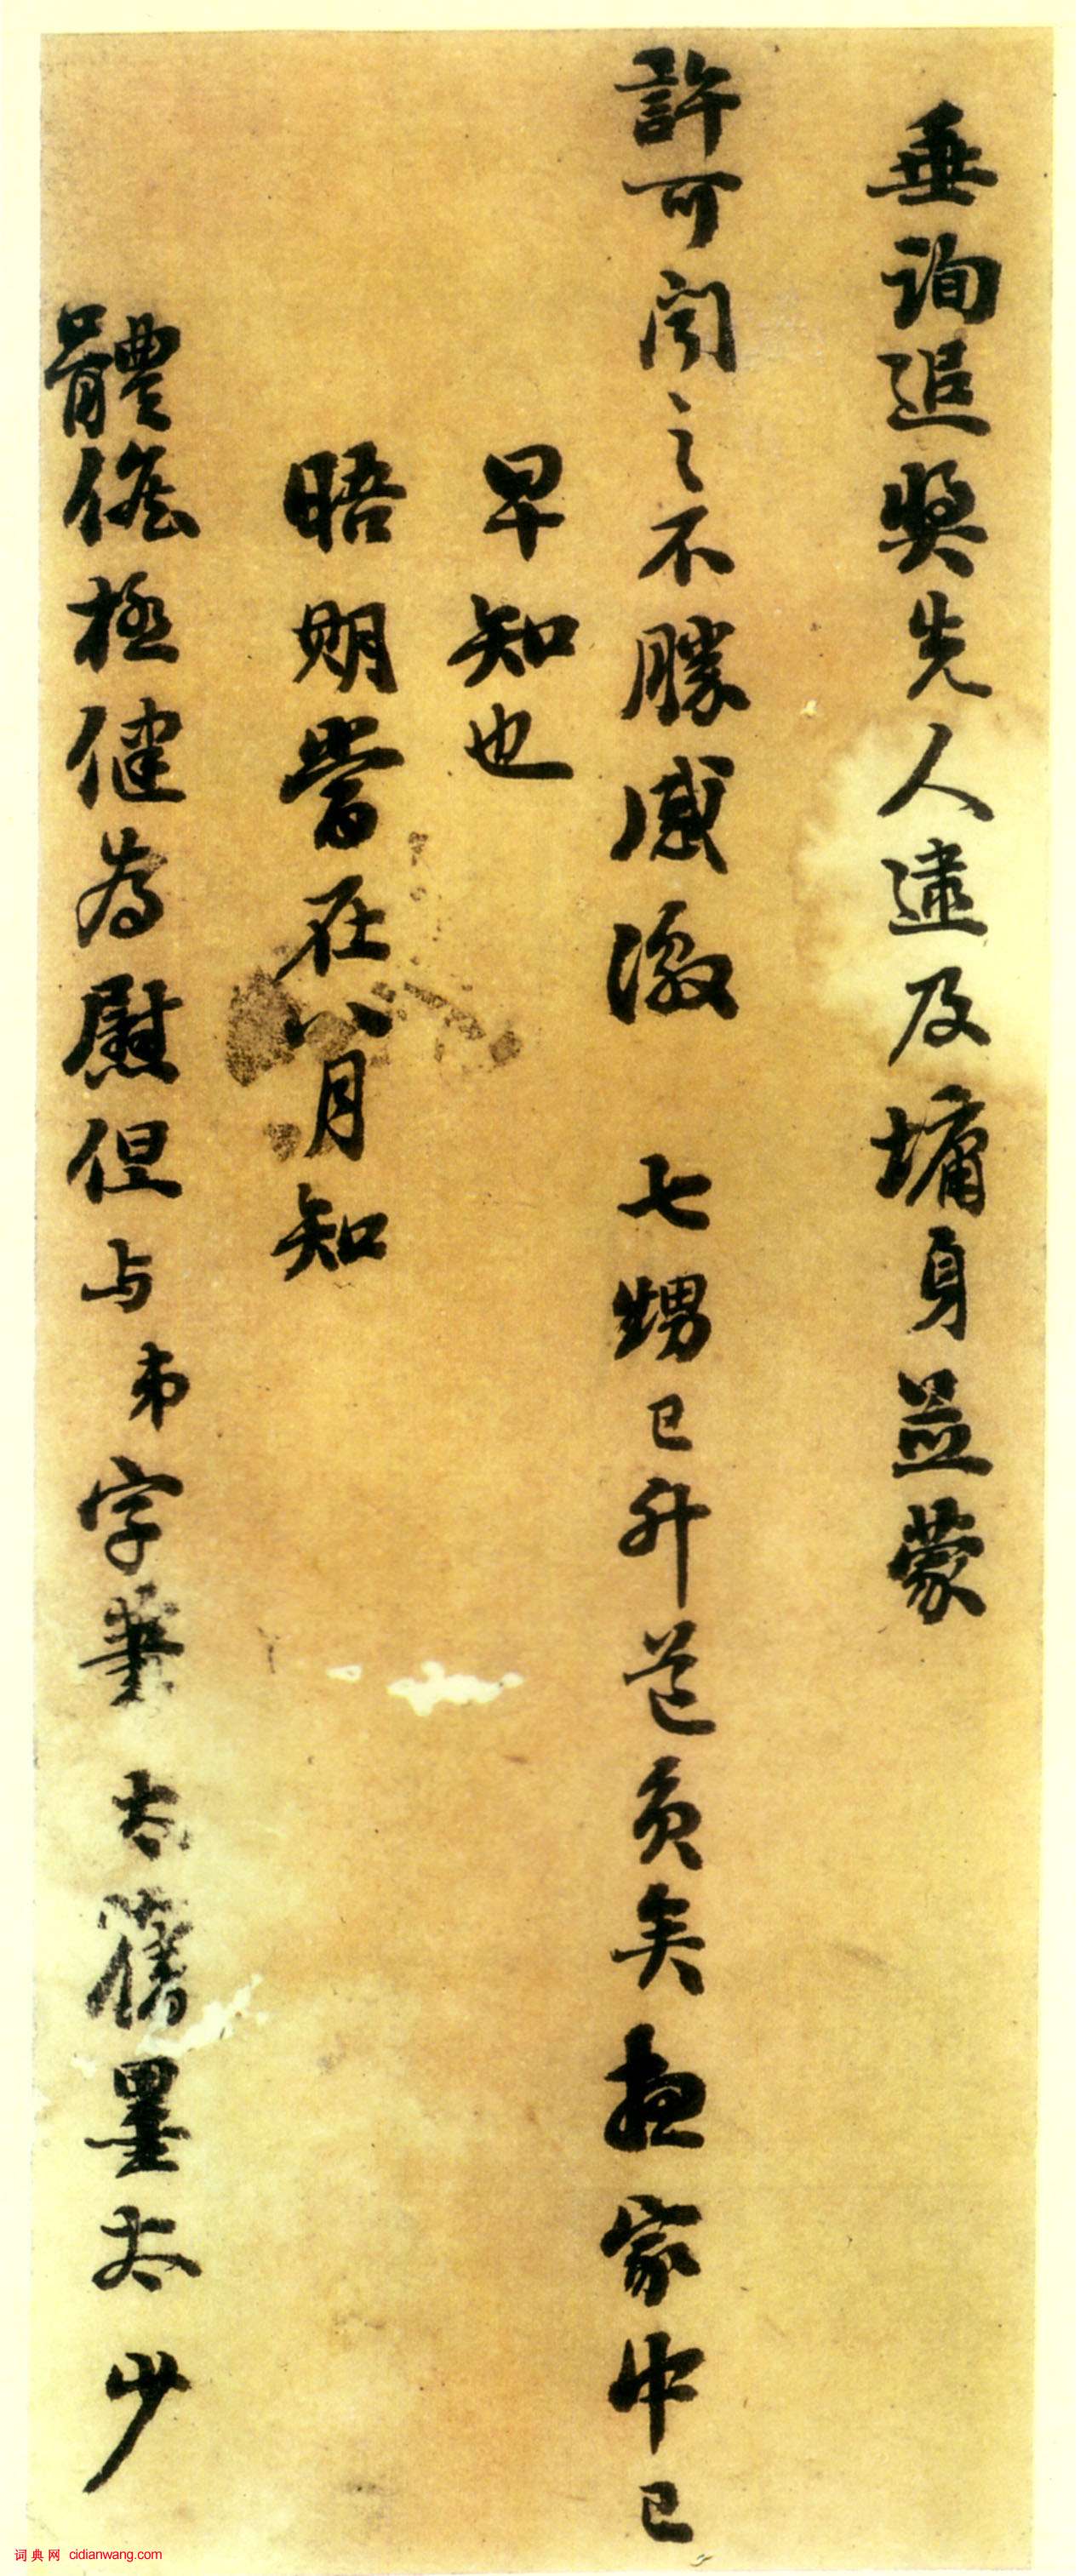 垂詢追獎先人逮及墉身並蒙
許可聞之不勝感激 七甥已升道員矣想家中已
早知也
晤期當在八月知
體儋極健為慰但与弟字筆太舊墨太少
词典网 cidianwang.com